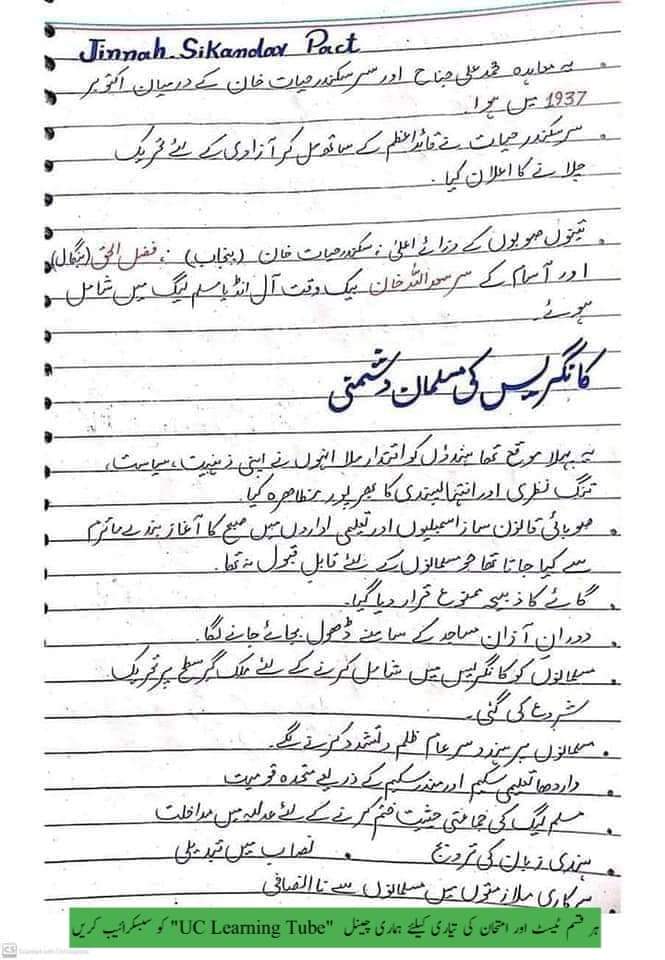 Jinnah Sikandar Pact
یہ معاہدہ محمد علی جناح اور سر سکندر حیات خان کے درمیان اکتوبر
1937 میں ہوا.
سر سکندر حیات نے قائداعظم کے ساتھ مل کر آزادی کے لئے تحریک
چلانے کا اعلان کیا.
تینوں صوبوں کے وزرائے اعلیٰ، سکندر حیات خان (پنجاب)، فضل الحق (بنگال)
اور آسام کے سر سعد اللہ خان بیک وقت آل انڈیا مسلم لیگ میں شامل
ہوئے.
کانگریس کی مسلمان دشمنی
یہ پہلا موقع تھا ہندوں کو اقتدار ملا انہوں نے اپنی ذہنیت، سیاست،
تنگ نظری اور انتہا پسندی کا بھرپور مظاہرہ کیا.
صوبائی قانون ساز اسمبلیوں اور تعلیمی اداروں میں صبح کا آغاز بندے ماترم
سے کیا جاتا تھا جو مسلمانوں کے لئے قابل قبول نہ تھا.
گائے کا ذبیحہ ممنوع قرار دیا گیا.
دوران آذان مساجد کے سامنے ڈھول بجائے جانے لگا.
مسلمانوں کو کانگریس میں شامل کرنے کے لئے ملک گیر سطح پر تحریک
شروع کی گئی.
مسلمانوں پر ہندو سر عام ظلم و تشدد کرنے لگے.
واردھا تعلیمی سکیم اور مندر سکیم کے ذریعے متحدہ قومیت
مسلم لیگ کی جماعتی حیثیت ختم کرنے کے لئے عدلیہ میں مداخلت
ہندی زبان کی ترویج . نصاب میں تبدیلی
سرکاری ملازمتوں میں مسلمانوں سے نا انصافی
ہر قسم ٹیسٹ اور امتحان کی تیاری کیلئے ہماری چینل "UC Learning Tube" کو سبسکرائیب کریں
CS Scanned with CamScanner